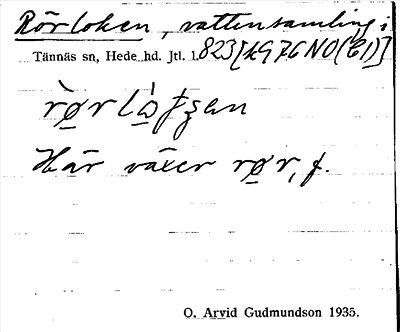 Rörloken, vattensamling i
Tännäs sn, Hede hd. Jtl. l. 823 [19 7G NO (El)]
Här växer rør, f.
O. Arvid Gudmundson 1935.